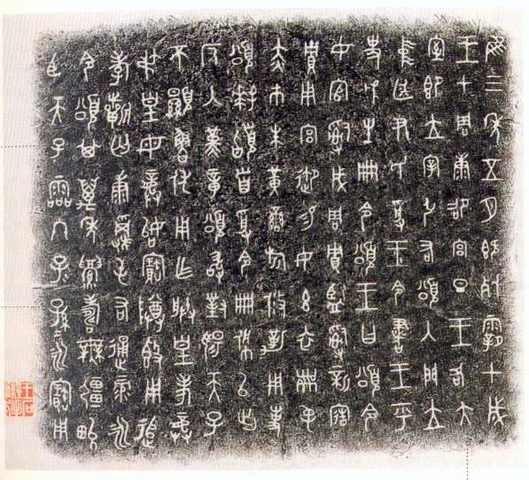 隹三年五月既死霸甲戌
王才周康卲宮旦王各大
室即立宰引右頌入門立
中廷尹氏受王令書王乎
史虢生冊令頌王曰頌令
女官𤔲成周貯監𤔲新造
貯用宮御易女玄衣黹屯
赤巿朱黃䜌旂攸勒用事
頌拜𩒨首受令冊佩以出
反入堇章頌敢對揚天子
不顯魯休用乍朕皇考龏
弔皇母龏始寶尊簋用追
孝匄康屯右通彔永
令頌其萬年眉壽無疆畯
臣天子霝冬子孫永寶用